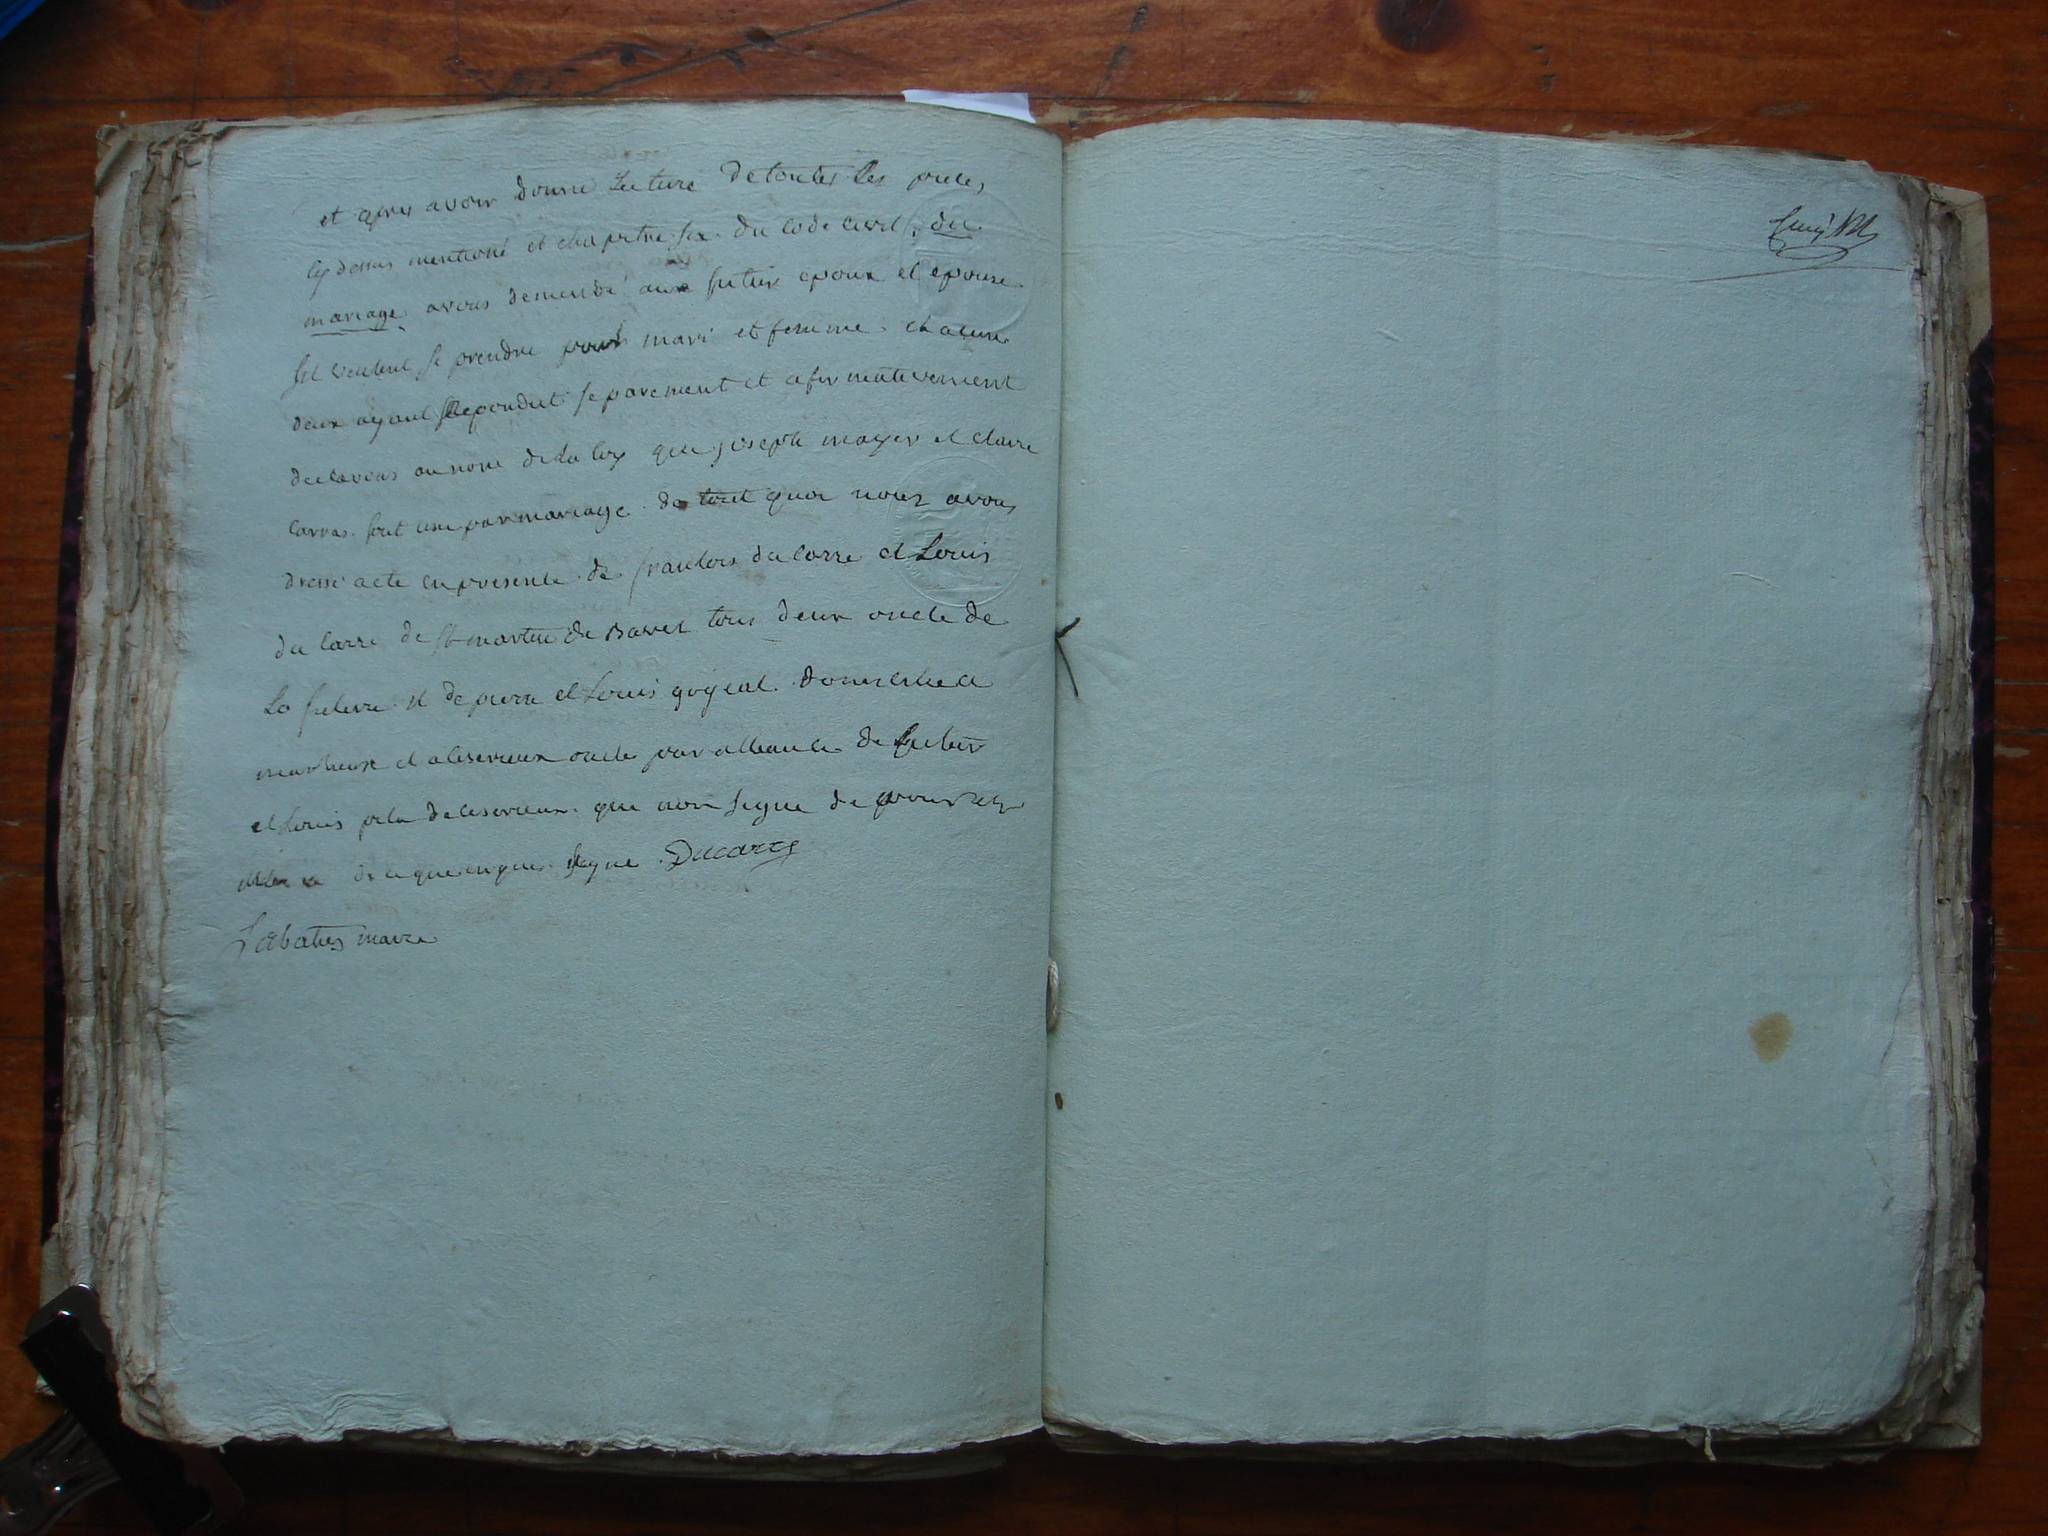 et apres avoir donné lecture de toutes les pieces
cy dessus mentioné et chapitre six du code civil, du
mariage avons demendé aux futeur epoux et epouse
sil veulent se prendre pour mari et femme. chacune
deux ayant reponduts separement et afirmativement
declarons au nom de la loy que joseph mayer et claire
carras sont uni par mariage. de tout quoi nous avons
dressé acte en presente de francois du carre et Louis
du carre de st martin de tous deux oncle de
la future et de pierre et Louis goyeat
et oncle par alliance de
et Louis que non signe de
de ce que enquis signe Ducarre
Labatie maire